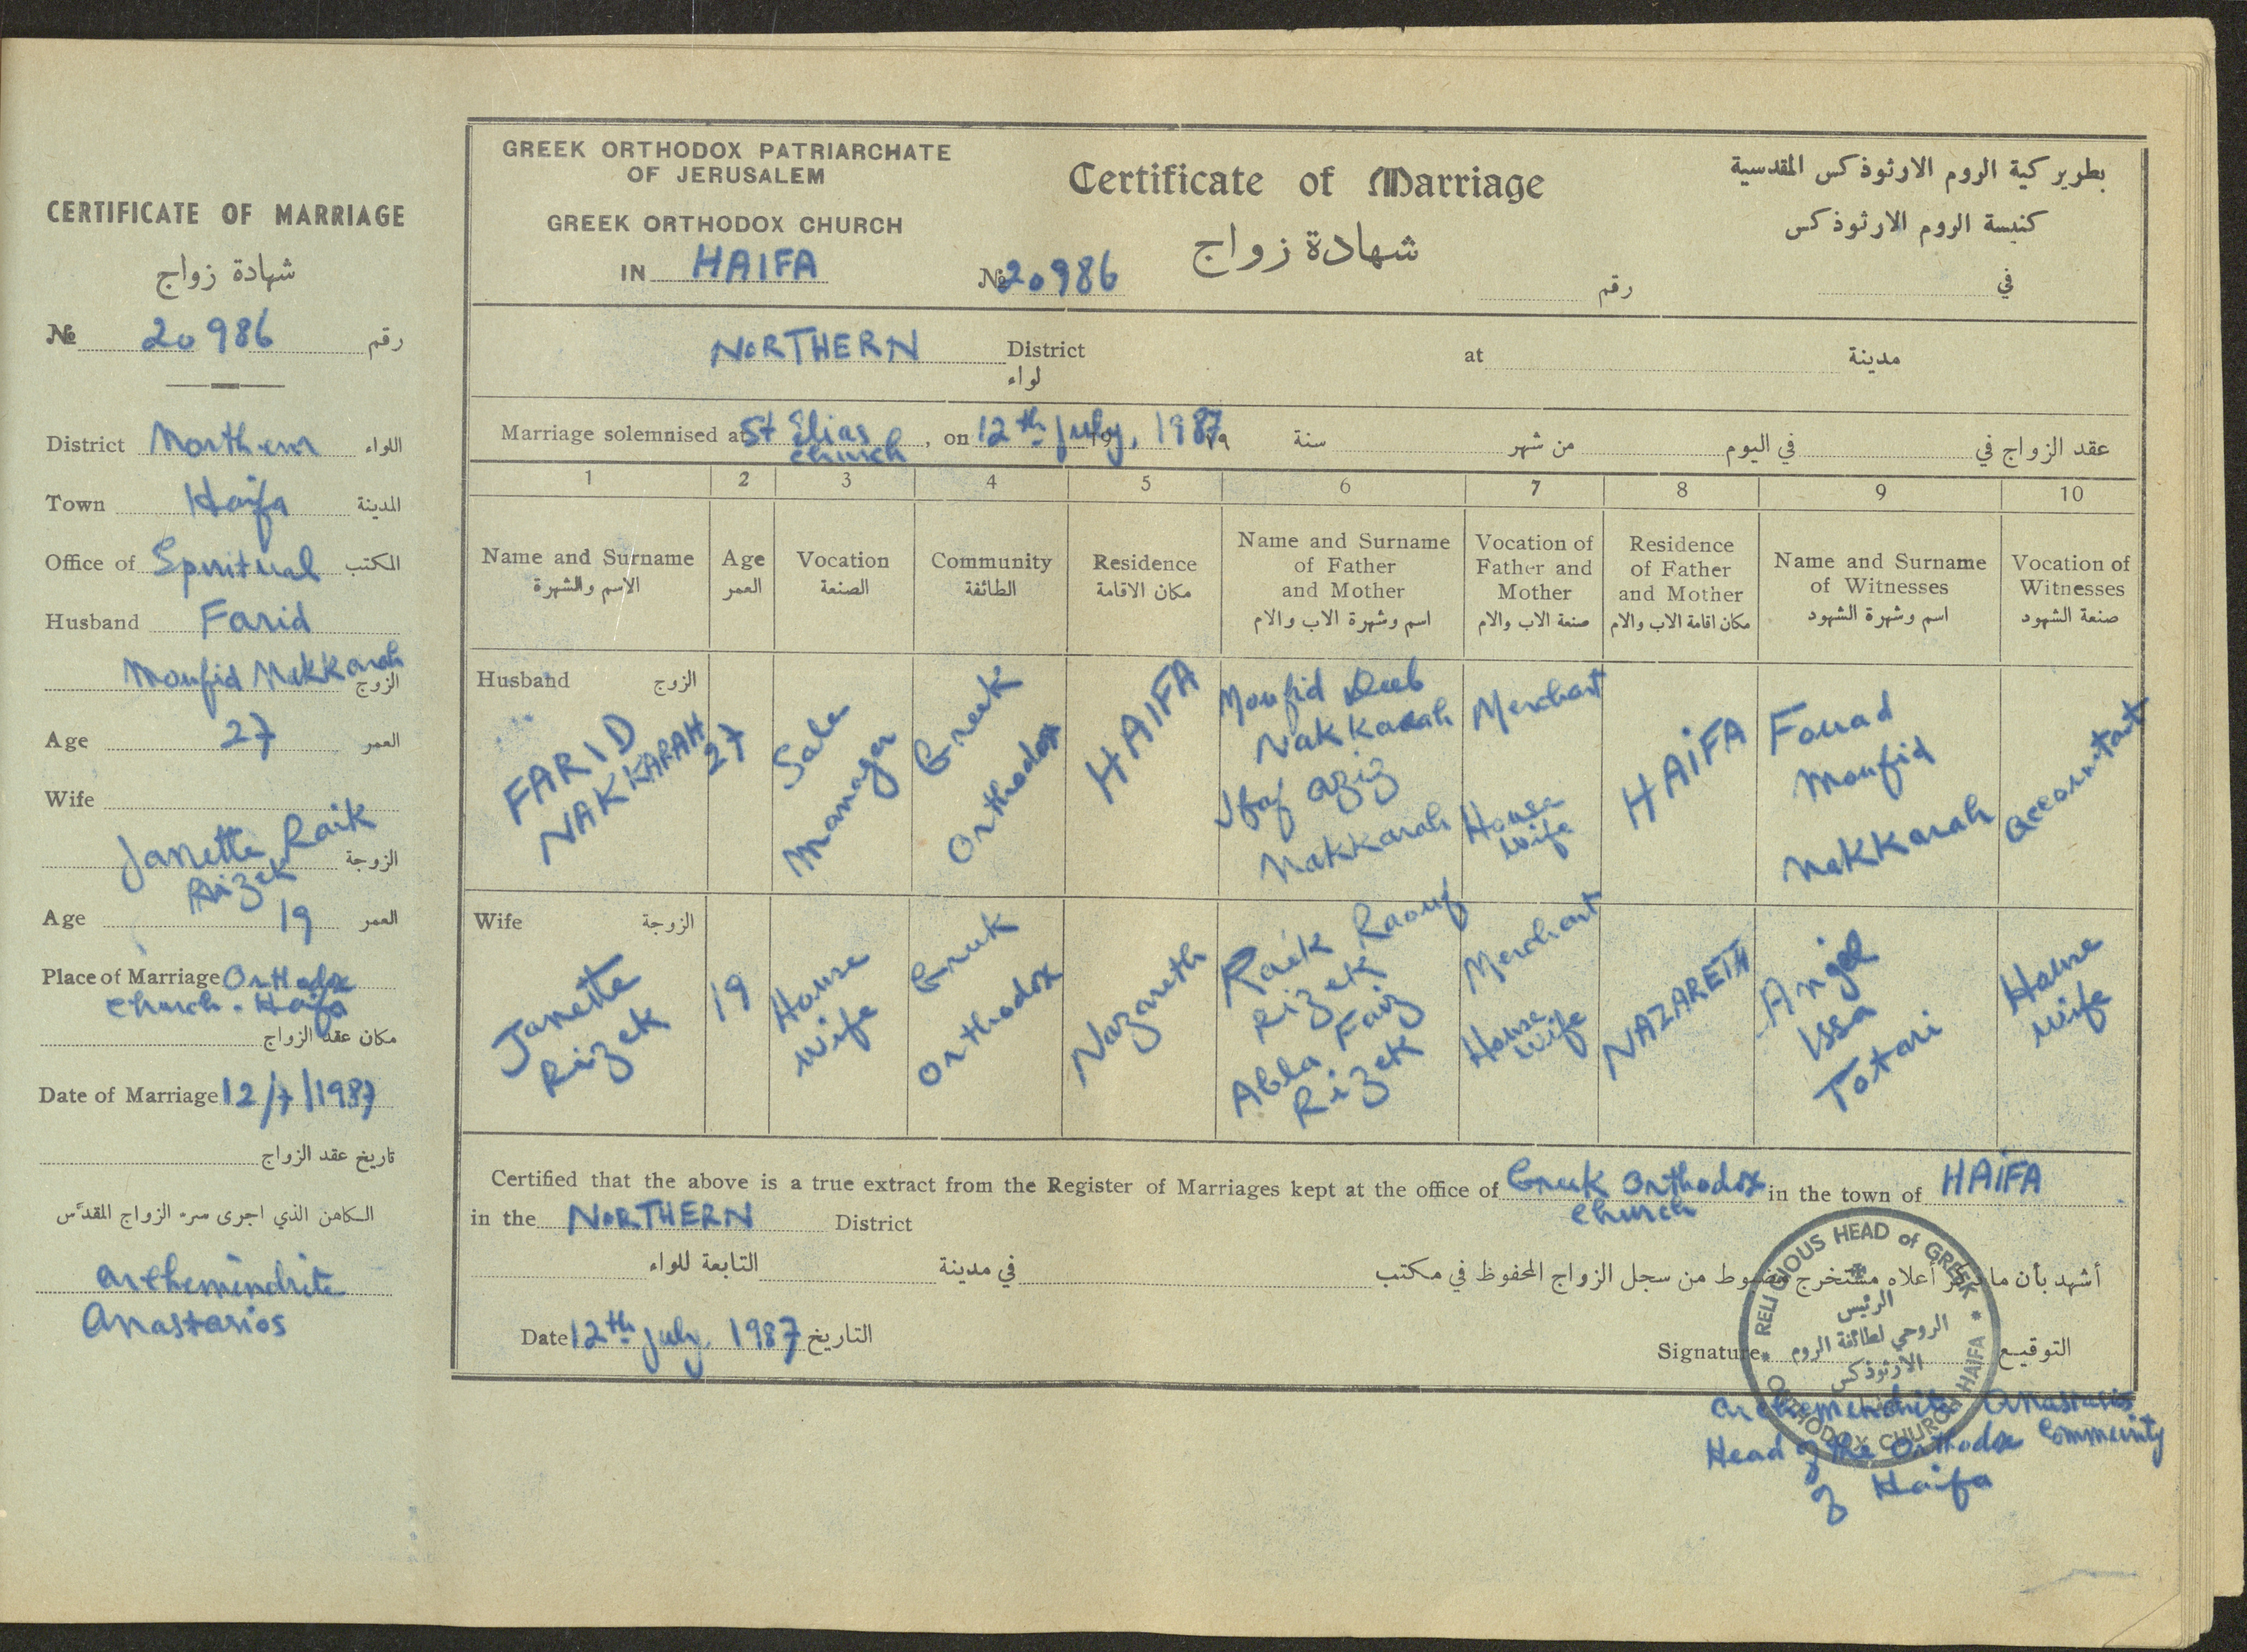 CERTIFICATE OF MARRIAGE
شهادة زواج
№ 20986 رقم
District Northern اللواء
Town Haifa المدينة
Office of Spiritual المكتب
Husband Farid
Moufid Nakkarah الزوج
Age 27 العمر
Wife
Janette Raik
Rizek الزوجة
Age 19 العمر
Place of Marriage Orthodox
Church - Haifa
مكان عقد الزواج
Date of Marriage 12/7/1987
تاريخ عقد الزواج
الكاهن الذي اجرى سره الزواج المقدس
Archemendrite
Anastasios
GREEK ORTHODOX PATRIARCHATE
OF JERUSALEM
GREEK ORTHODOX CHURCH
IN HAIFA
Certificate of Marriage
شهادة زواج
№ 20986
بطوير كية الروم الارثوذكس المقدسية
كنيسة الروم الارثوذكس
رقم في
NORTHERN District at مدينة
لواء
Marriage solemnised at St Elias Church, on 12th July, 1987 19 ١٩ سنة من شهر في اليوم عقد الزواج في
1 2 3 4 5 6 7 8 9 10
Name and Surname
الاسم والشهرة
Age
العمر
Vocation
الصنعة
Community
الطائفة
Residence
مكان الاقامة
Name and Surname
of Father
and Mother
اسم وشهرة الاب والام
Vocation of
Father and
Mother
صنعة الاب والام
Residence
of Father
and Mother
مكان اقامة الاب والام
Name and Surname
of Witnesses
اسم وشهرة الشهود
Vocation of
Witnesses
صنعة الشهود
Husband الزوج
FARID
NAKKARAH
27
Manager
Greek
Orthodox
HAIFA
Moufid Deeb
Nakkarah
Aziz
Nakkarah
Merchant
House
wife
HAIFA
Fouad
Moufid
Nakkarah
Accountant
Wife الزوجة
Janette
Rizek
19
House
wife
Greek
Orthodox
Nazareth
Raik Raouf
Rizek
Abla Faiz
Rizek
Merchant
House
wife
NAZARETH
Angel
Issa
Totari
House
wife
Certified that the above is a true extract from the Register of Marriages kept at the office of Greek Orthodox Church in the town of HAIFA
in the NORTHERN District
أشهد بأن ما أعلاه مستخرج مضبوط من سجل الزواج المحفوظ في مكتب في مدينة التابعة للواء
Date 12th July, 1987 التاريخ
Signature التوقيع
RELIGIOUS HEAD of GREEK ORTHODOX CHURCH HAIFA
الرئيس
الروحي لطائفة الروم
الارثوذكس
Archemendrite Anastasios
Head of the Orthodox Community
of Haifa